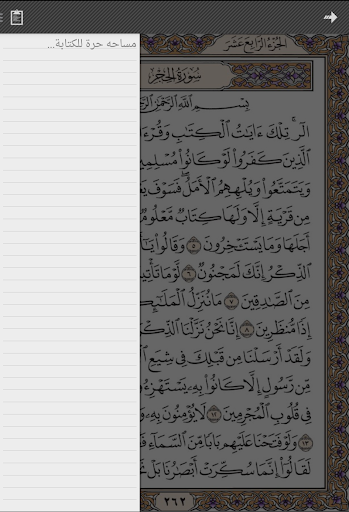 مساحه حرة للكتابة...
الجزء الرابع عشر
سورة الحجر
بسم الله الرحمن
الٓر ۚ تِلْكَ ءَايَٰتُ ٱلْكِتَٰبِ وَقُرْءَ
ٱلَّذِينَ كَفَرُوا۟ لَوْ كَانُوا۟ مُسْلِمِي
وَيَتَمَتَّعُوا۟ وَيُلْهِهِمُ ٱلْأَمَلُ ۖ فَسَوْفَ يَع
مِن قَرْيَةٍ إِلَّا وَلَهَا كِتَابٌ مَّعْلُومٌ
أَجَلَهَا وَمَا يَسْتَـْٔخِرُونَ ٥ وَقَالُوا۟ يَٰٓأَ
ٱلذِّكْرُ إِنَّكَ لَمَجْنُونٌ ٦ لَّوْ مَا تَأْتِي
مِنَ ٱلصَّٰدِقِينَ ٧ مَا نُنَزِّلُ ٱلْمَلَٰٓئِكَ
إِذًا مُّنظَرِينَ ٨ إِنَّا نَحْنُ نَزَّلْنَا ٱلذِّكْ
وَلَقَدْ أَرْسَلْنَا مِن قَبْلِكَ فِى شِيَعِ ٱلْ
مِّن رَّسُولٍ إِلَّا كَانُوا۟ بِهِۦ يَسْتَهْزِءُ
فِى قُلُوبِ ٱلْمُجْرِمِينَ ١٢ لَا يُؤْمِنُونَ بِهِۦ وَ
١٣ وَلَوْ فَتَحْنَا عَلَيْهِم بَابًا مِّنَ ٱلسَّمَآءِ فَ
لَقَالُوٓا۟ إِنَّمَا سُكِّرَتْ أَبْصَٰرُنَا بَلْ نَحْ
٢٦٢